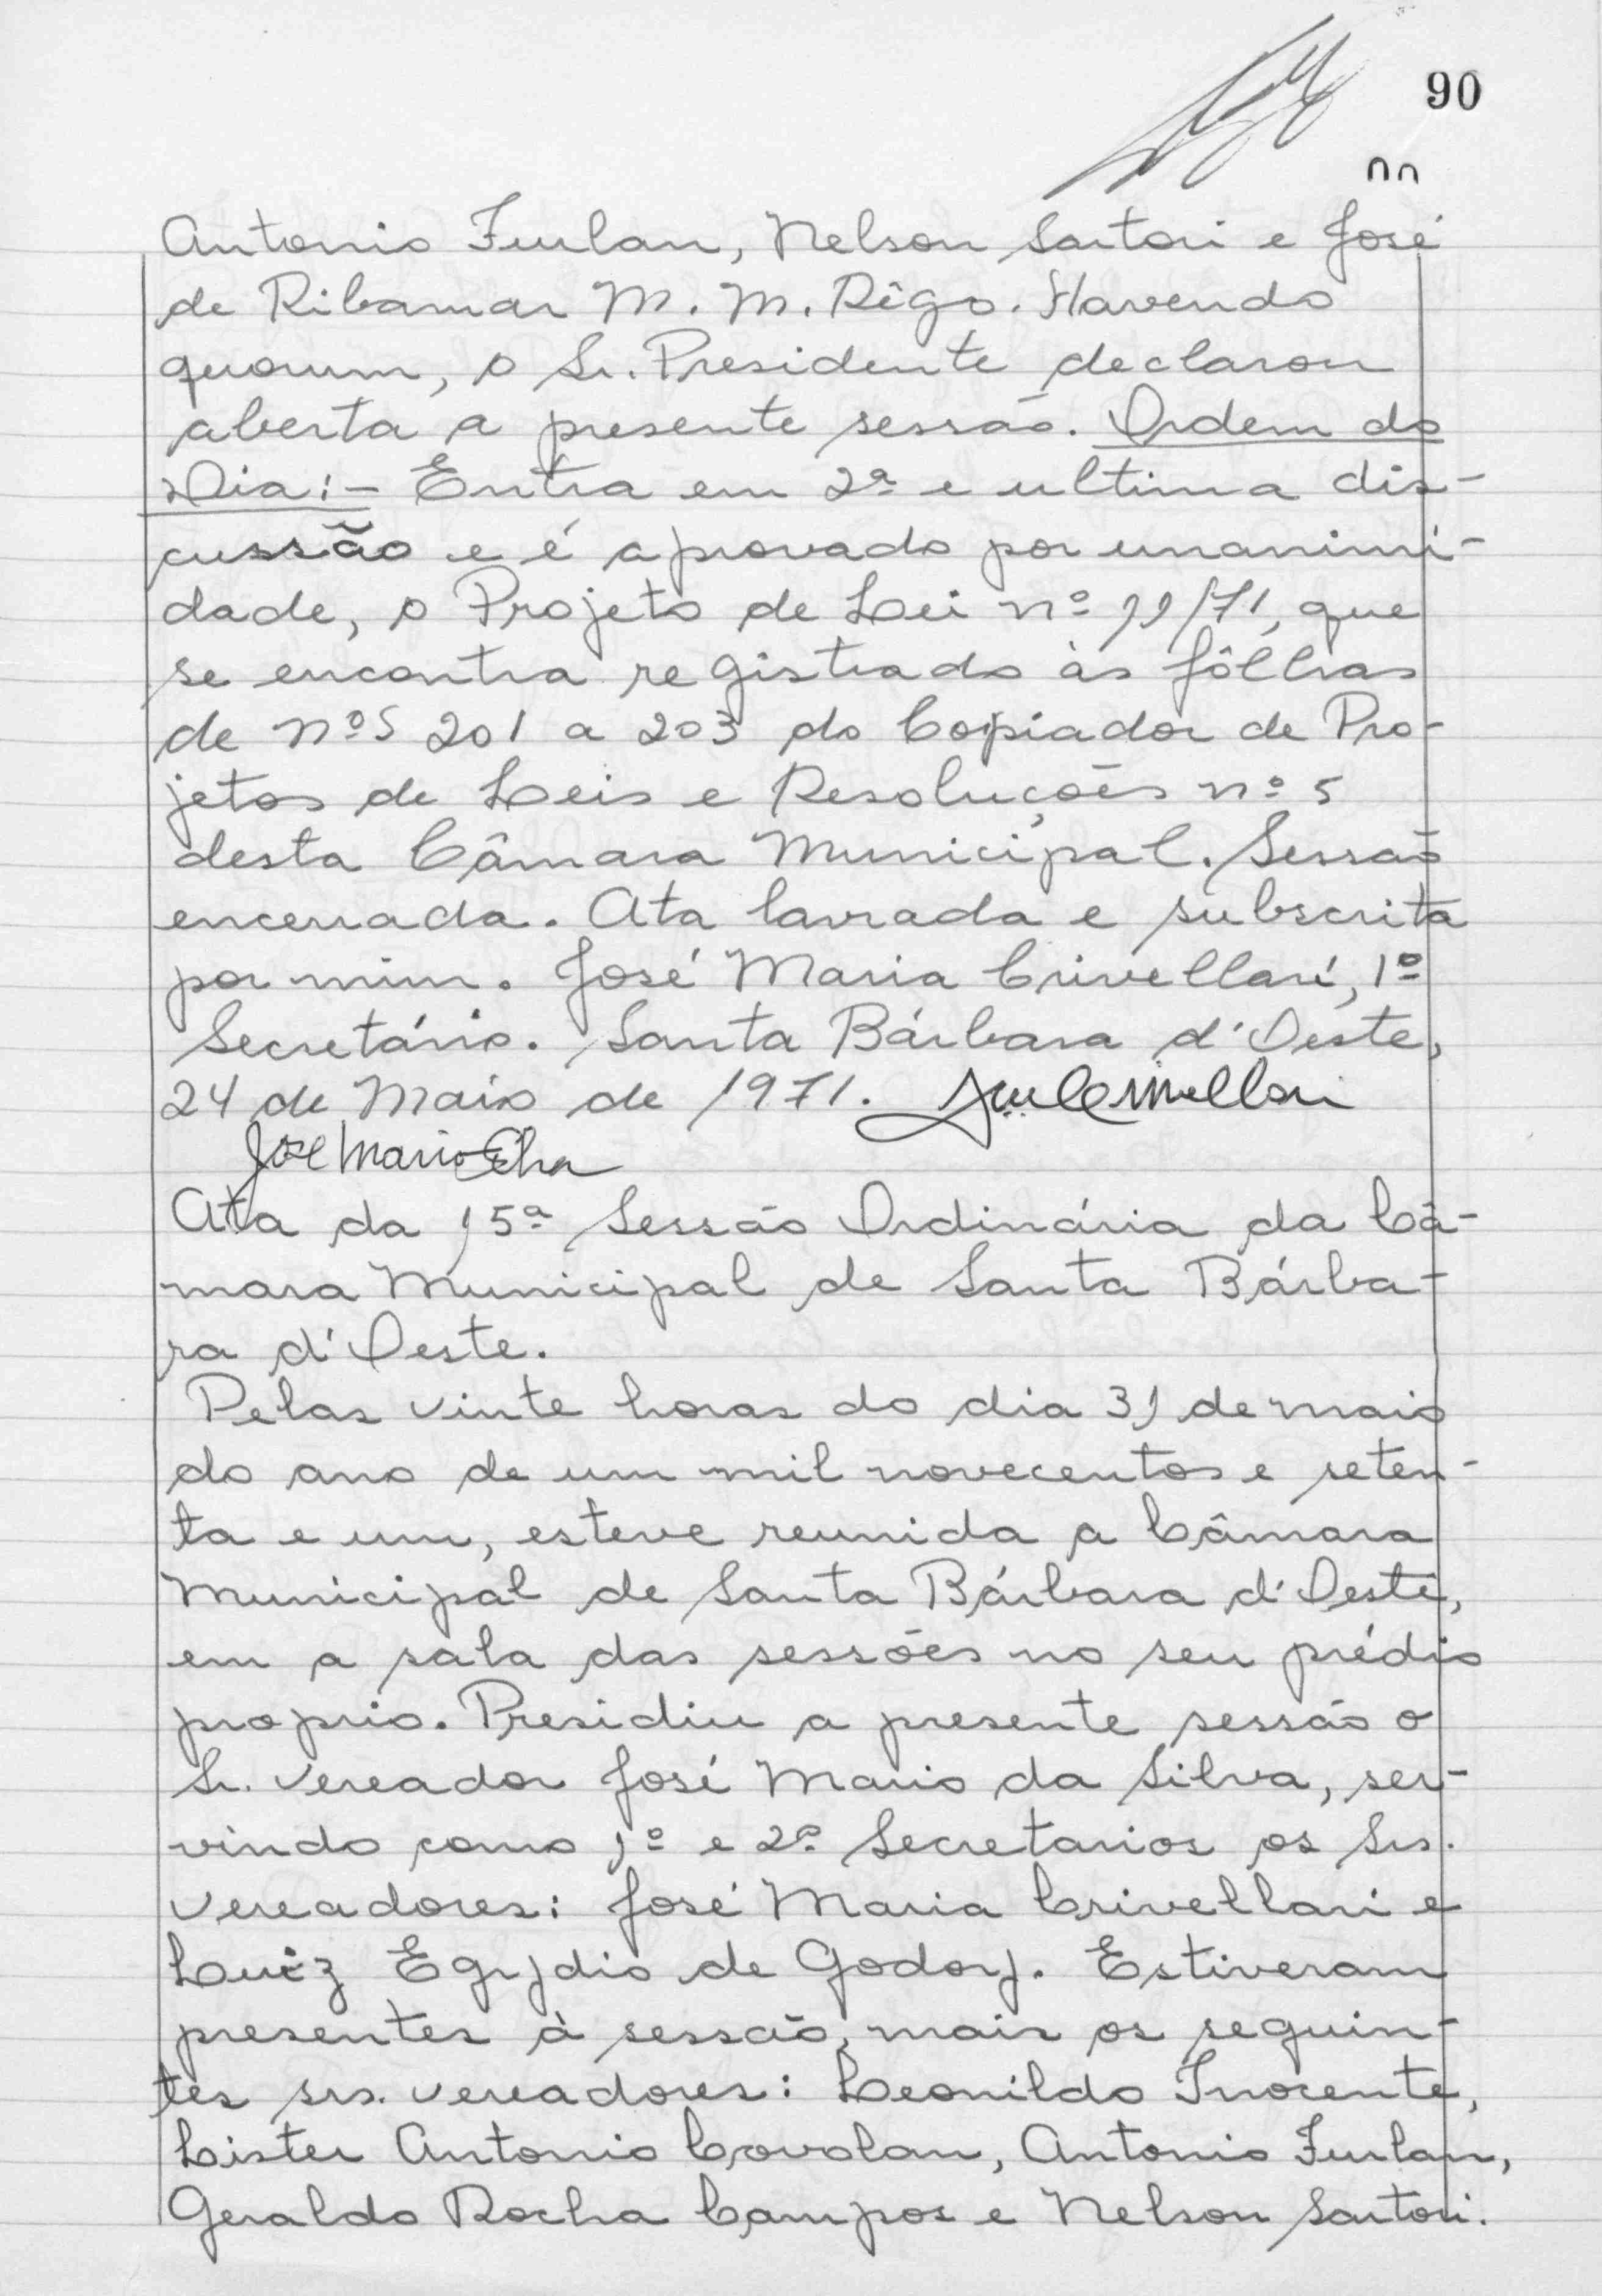 90
Antonio Furlan, Nelson Sartori e José
de Ribamar M. M. Rêgo. Havendo
quorum, o Sr. Presidente declarou
aberta a presente sessão. Ordem do
Dia:- Entra em 2ª e ultima dis-
cussão e é aprovado por unanimi-
dade, o Projeto de Lei nº 11/71, que
se encontra registrado às fôlhas
de nºs 201 a 203 do Copiador de Pro-
jetos de Leis e Resoluções nº 5
desta Câmara Municipal. Sessão
encerrada. Ata lavrada e subscrita
por mim. José Maria Crivellari, 1º
Secretário. Santa Bárbara d'Oeste,
24 de Maio de 1971.
Ata da 15ª Sessão Ordinária da Câ-
mara Municipal de Santa Bárba-
ra d'Oeste.
Pelas vinte horas do dia 31 de maio
do ano de um mil novecentos e seten-
ta e um, esteve reunida a Câmara
Municipal de Santa Bárbara d'Oeste,
em a sala das sessões no seu prédio
proprio. Presidiu a presente sessão o
Sr. Vereador José Mario da Silva, ser-
vindo como 1º e 2º Secretarios os Srs.
Vereadores: José Maria Crivellari e
Luiz Egydio de Godoy. Estiveram
presentes à sessão, mais os seguin-
tes srs. vereadores: Leonildo Inocente,
Lister Antonio Covolan, Antonio Furlan,
Geraldo Rocha Campos e Nelson Sartori.